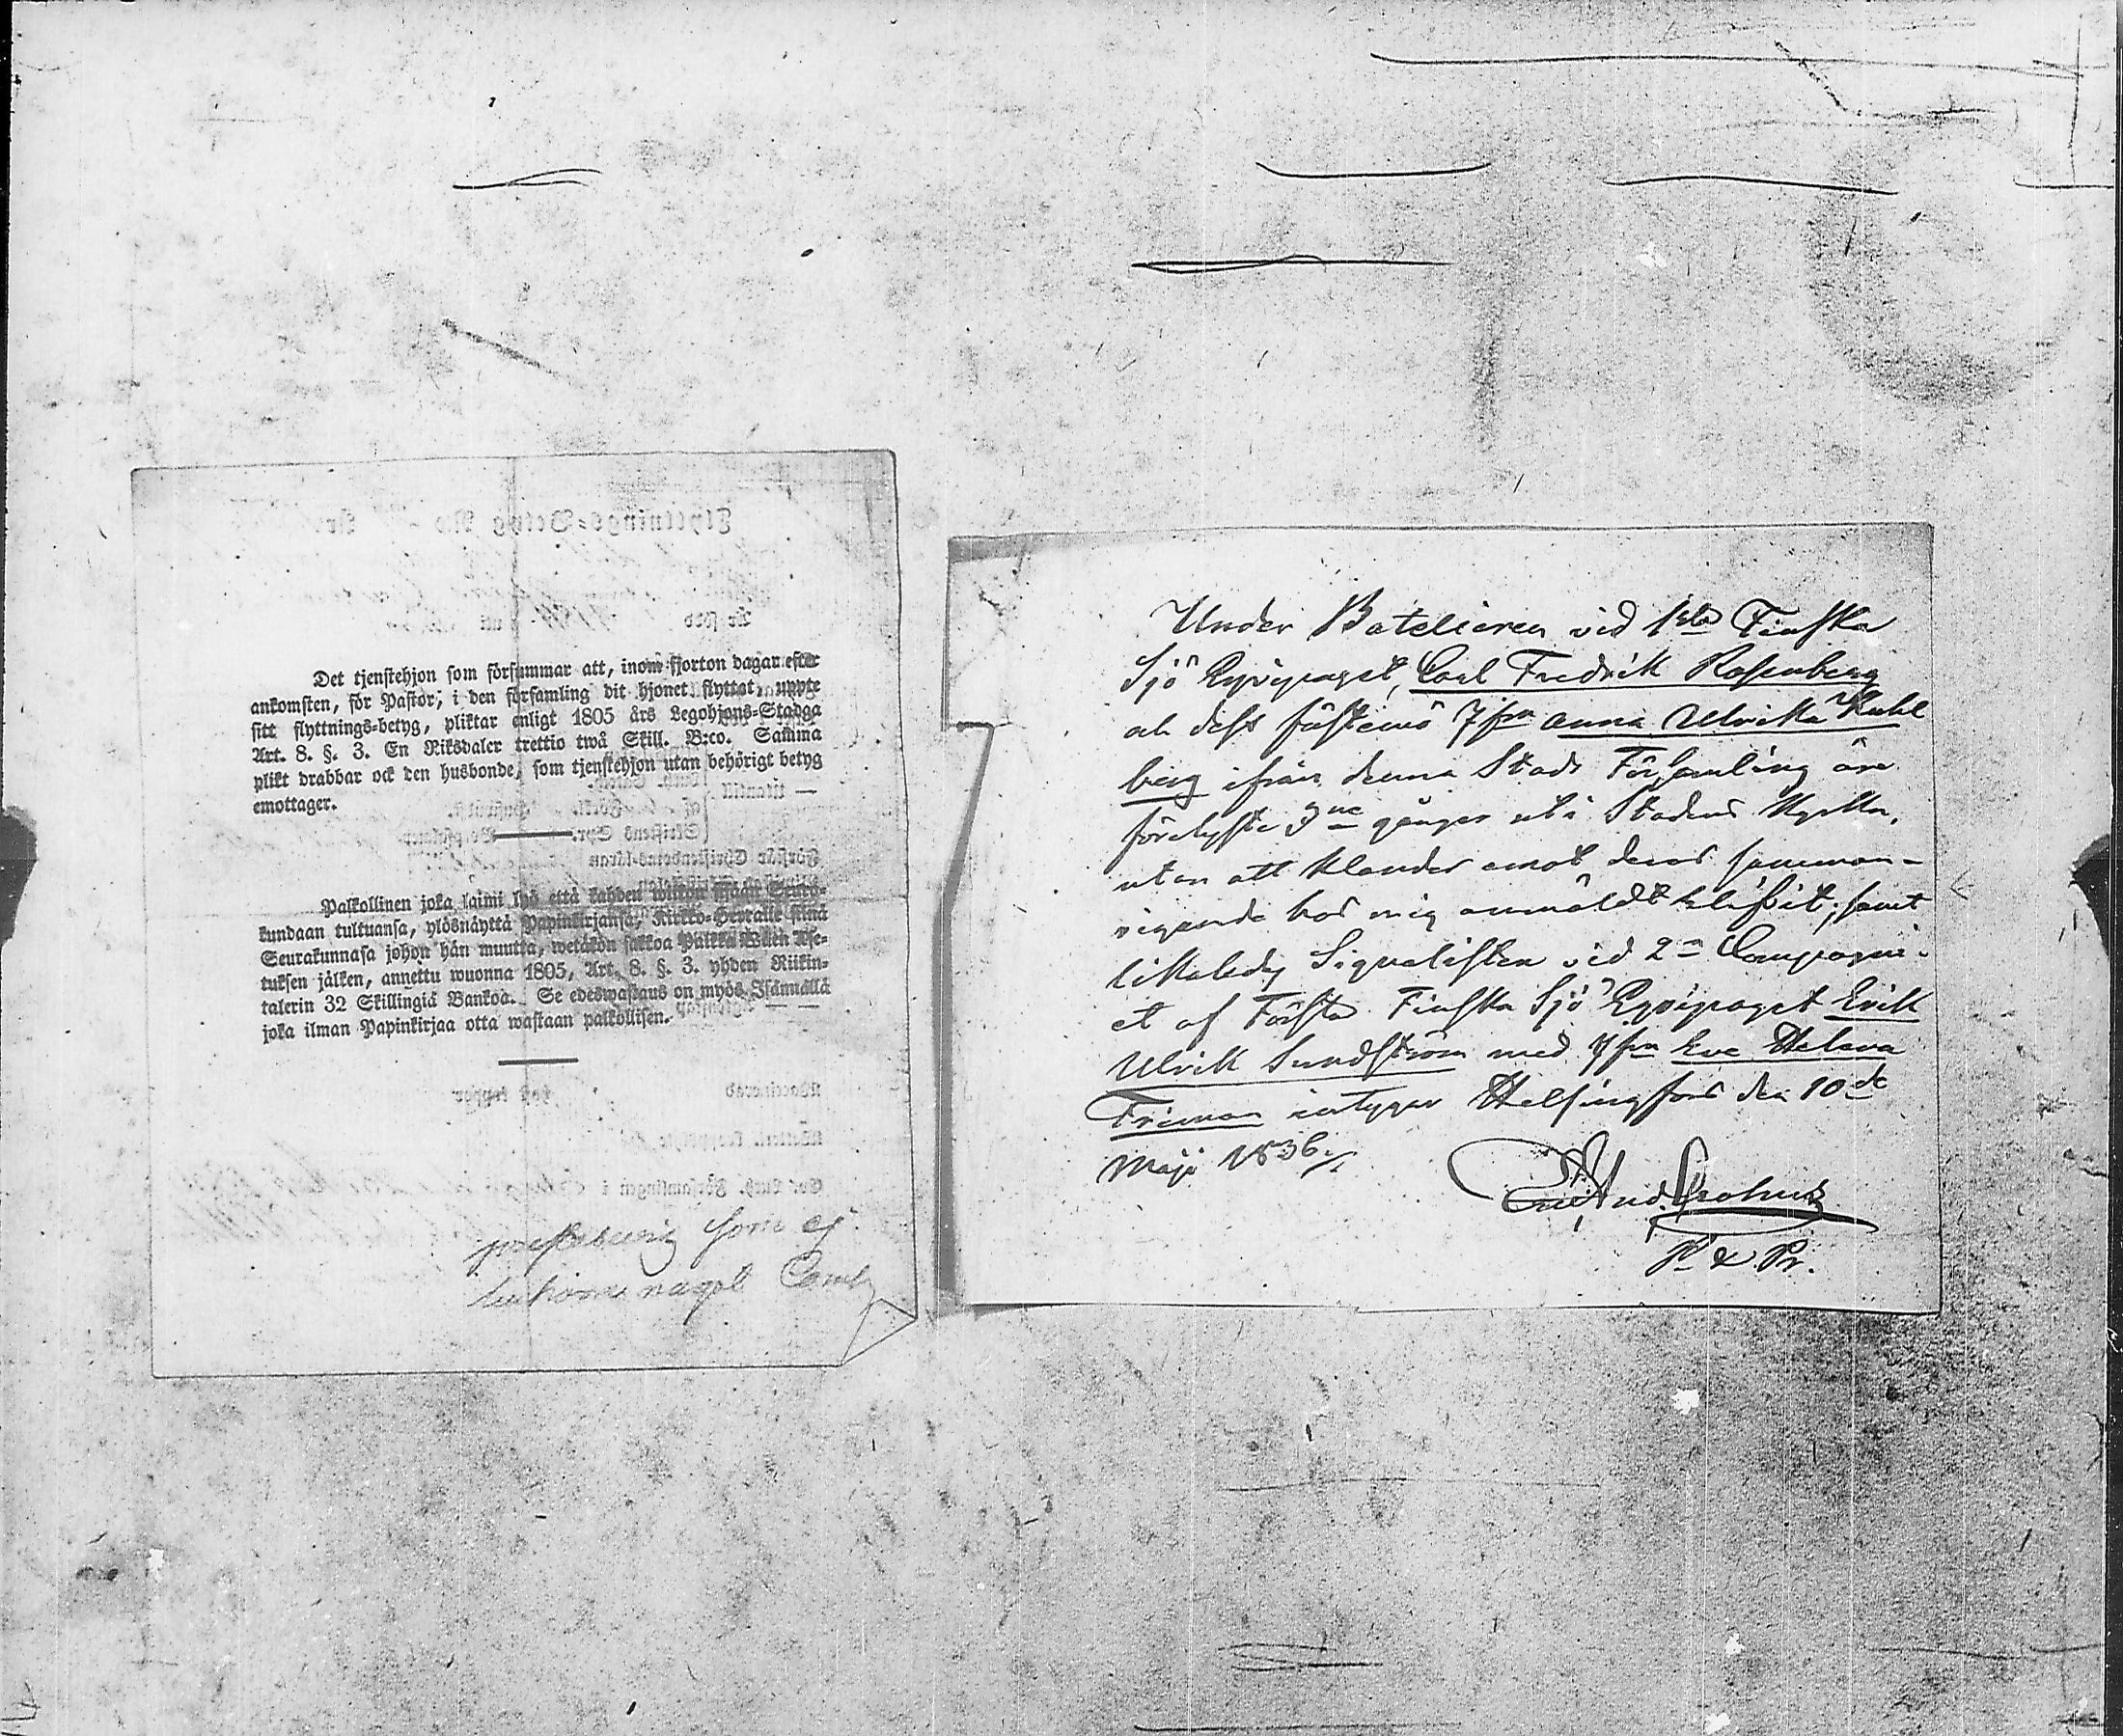 Det tjenstehjon som försummar att, inom fjorton dagar efter
ankomsten, för Pastor, i den församling dit hjonet flyttat, uppte
sitt flyttnings-betyg, pliktar enligt 1805 års Legohjons-Stadga
Art. 8. §. 3. En Riksdaler trettio twå Skill. B:co. Samma
plikt drabbar ock den husbonde, som tjenstehjon utan behörigt betyg
emottager.
Palkollinen joka laimi lyö että kahden wiikon sisään Seura-
kundaan tultuansa, ylösnäyttä Papinkirjansa, Kirkko-Herralle siinä
Seurakunnasa johon hän muutta, wetäkön sakkoa Palkka Wäen Ase-
tuksen jälken, annettu wuonna 1805, Art. 8. §. 3. yhden Riikin-
talerin 32 Skillingiä Bankoa. Se edeswastaus on myös Isännällä
joka ilman Papinkirjaa otta wastaan palkollisen.
som ej
något
Under Batelieren vid 1sta Finska
Sjö Eqvipaget, Carl Fredrik Rosenberg
och dess fästemö Jfrn Anna Ulrika Kuhl
berg ifrån denna Stads Församling äro
förelyste 3ne gånger uti Stadens Kyrka,
utan att klander emot deras samman-
vigande hos mig anmäldt blifvit; samt
likaledes Signalisten vid 2a Compagni-
et af Första Finska Sjö Eqvipaget Erik
Ulrik Sundström med Jfrn Eva Helena
Friman intygar Helsingfors den 10de
Maji 1836.
And. Crohns
P. & Pr.